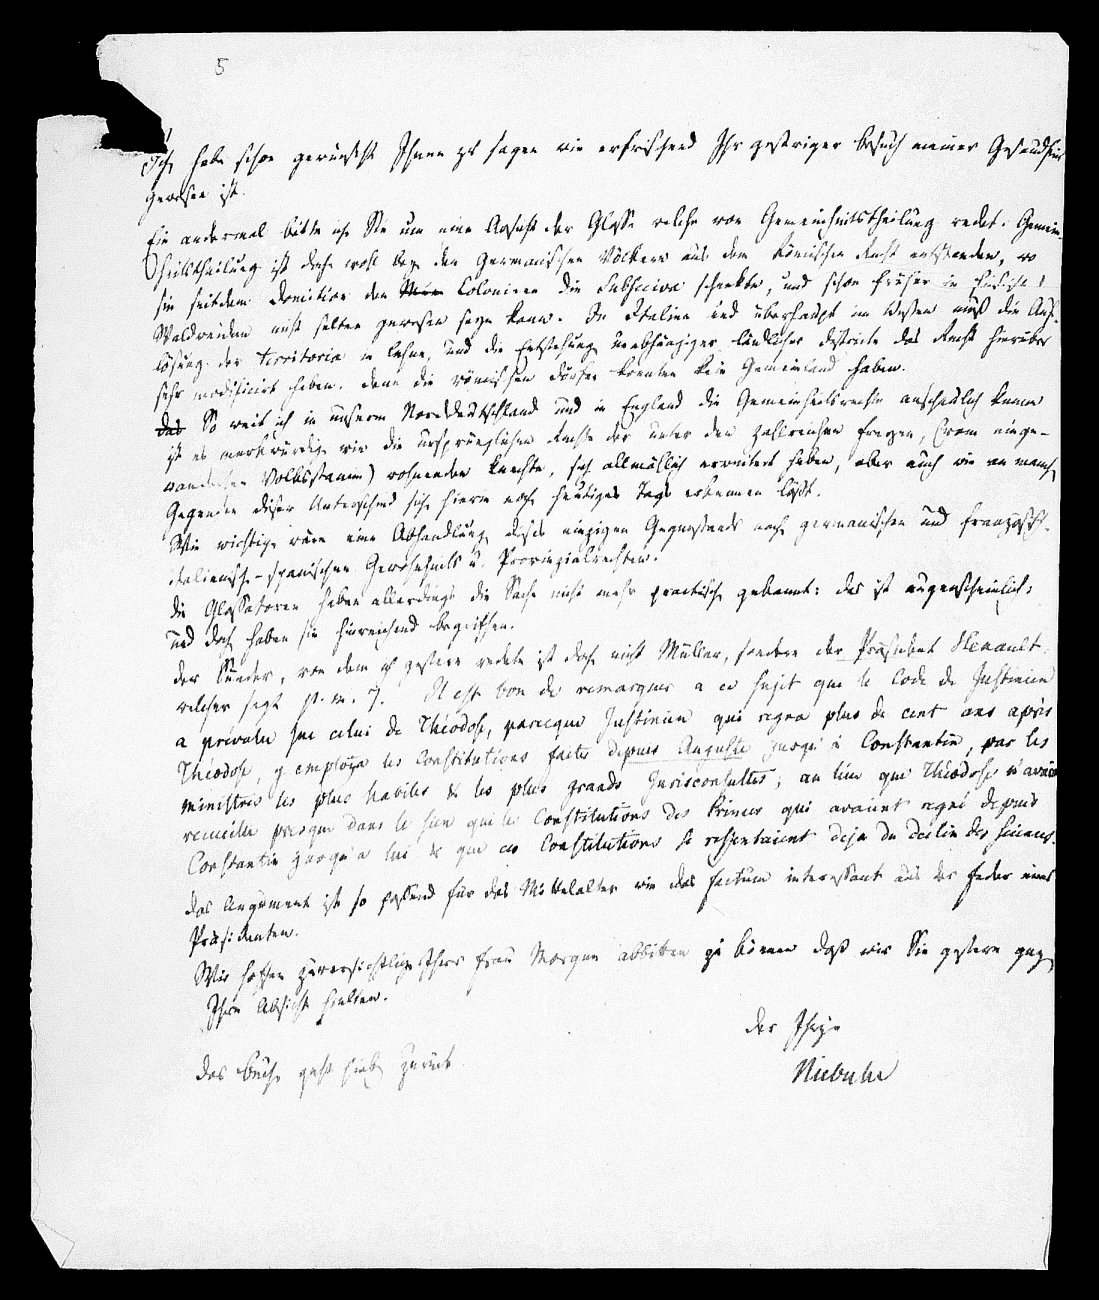 5
Ich habe schon gewünscht Ihnen zu sagen wie erfrischend Ihr gestriger Besuch meiner Gesundheit
gewesen ist.
Ein andermal bitte ich Sie um eine Ansicht der Glosse welche von Gemeinheitstheilung redet. Gemein-
heitstheilung ist doch wohl bey den Germanischen Völkern aus dem Römischen Recht entstanden, wo
sie seitdem Domitian den Colonieen die Subseciva schenkte, und schon früher in Hinsicht
Waldweiden nicht selten gewesen seyn kann. In Italien und überhaupt im Westen muß die Auf-
lösung der territoria in Lehne, und die Entstehung unabhängiger ländlicher Districte das Recht hierüber
sehr modificirt haben. denn die römischen Dörfer konnten kein Gemeinland haben.
das So weit ich in unserm Norddeutschland und in England die Gemeinheitsrechte anschaulich kenne
ist es merkwürdig wie die ursprünglichen Rechte der unter den zahlreichen freyen, (vom einge-
wanderten Volksstamm) wohnenden Knechte, sich allmählich erweitert haben, aber auch wie an manch
Gegenden dieser Unterschied sich hierin noch heutiges Tags erkennen läßt.
Wie wichtig wäre eine Abhandlung dieses einzigen Gegenstands nach germanischen und französisch-
italienisch-spanischen Gewohnheits u. Provinzialrechten.
die Glossatoren haben allerdings die Sache nicht mehr practisch gekannt: das ist augenscheinlich:
und doch haben sie hinreichend begriffen.
der Sünder, von dem ich gestern redete ist doch nicht Müller, sondern der Präsident Henault
welcher sagt p. m. 7. Il est bon de remarquer a ce sujet que le Code de Justinien
a prevalu sur celui de Théodose, parceque Justinien qui regna plus de cent ans après
Théodose, y employa les Constitutions faites depuis Auguste jusqu'à Constantin, par les
ministres les plus habiles & les plus grands Jurisconsultes; au lieu que Théodose n'avait
recueilli presque dans le sien que les Constitutions des Princes qui avaient regné depuis
Constantin jusqu'a lui & que ces Constitutions se ressentaient deja du declin des sciences.
das Argument ist so passend für das Mittelalter wie das factum interessant aus der Feder eines
Präsidenten.
Wir hoffen zuversichtlich Ihrer Frau Morgen abbitten zu können daß wir Sie gestern geg
Ihre Absicht hielten.
der Ihrige
Niebuhr
das Buch geht hiebey zurück